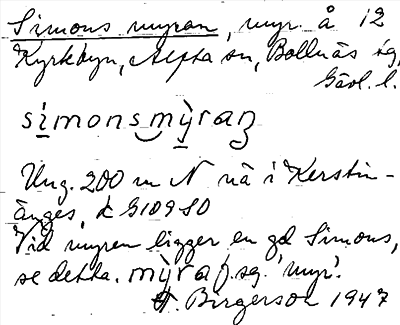 Simons myran, myr. å 12
Kyrkbyn, Alfta sn, Bollnäs sg,
Gävl. l.
simonsmỳraꞥ
Ung. 200 m N nä i Kerstin-
änges, k G109 SO
Vid myren ligger en gd Simons,
se detta. mỳra f. sg. 'myr'.
H. Birgerson 1947